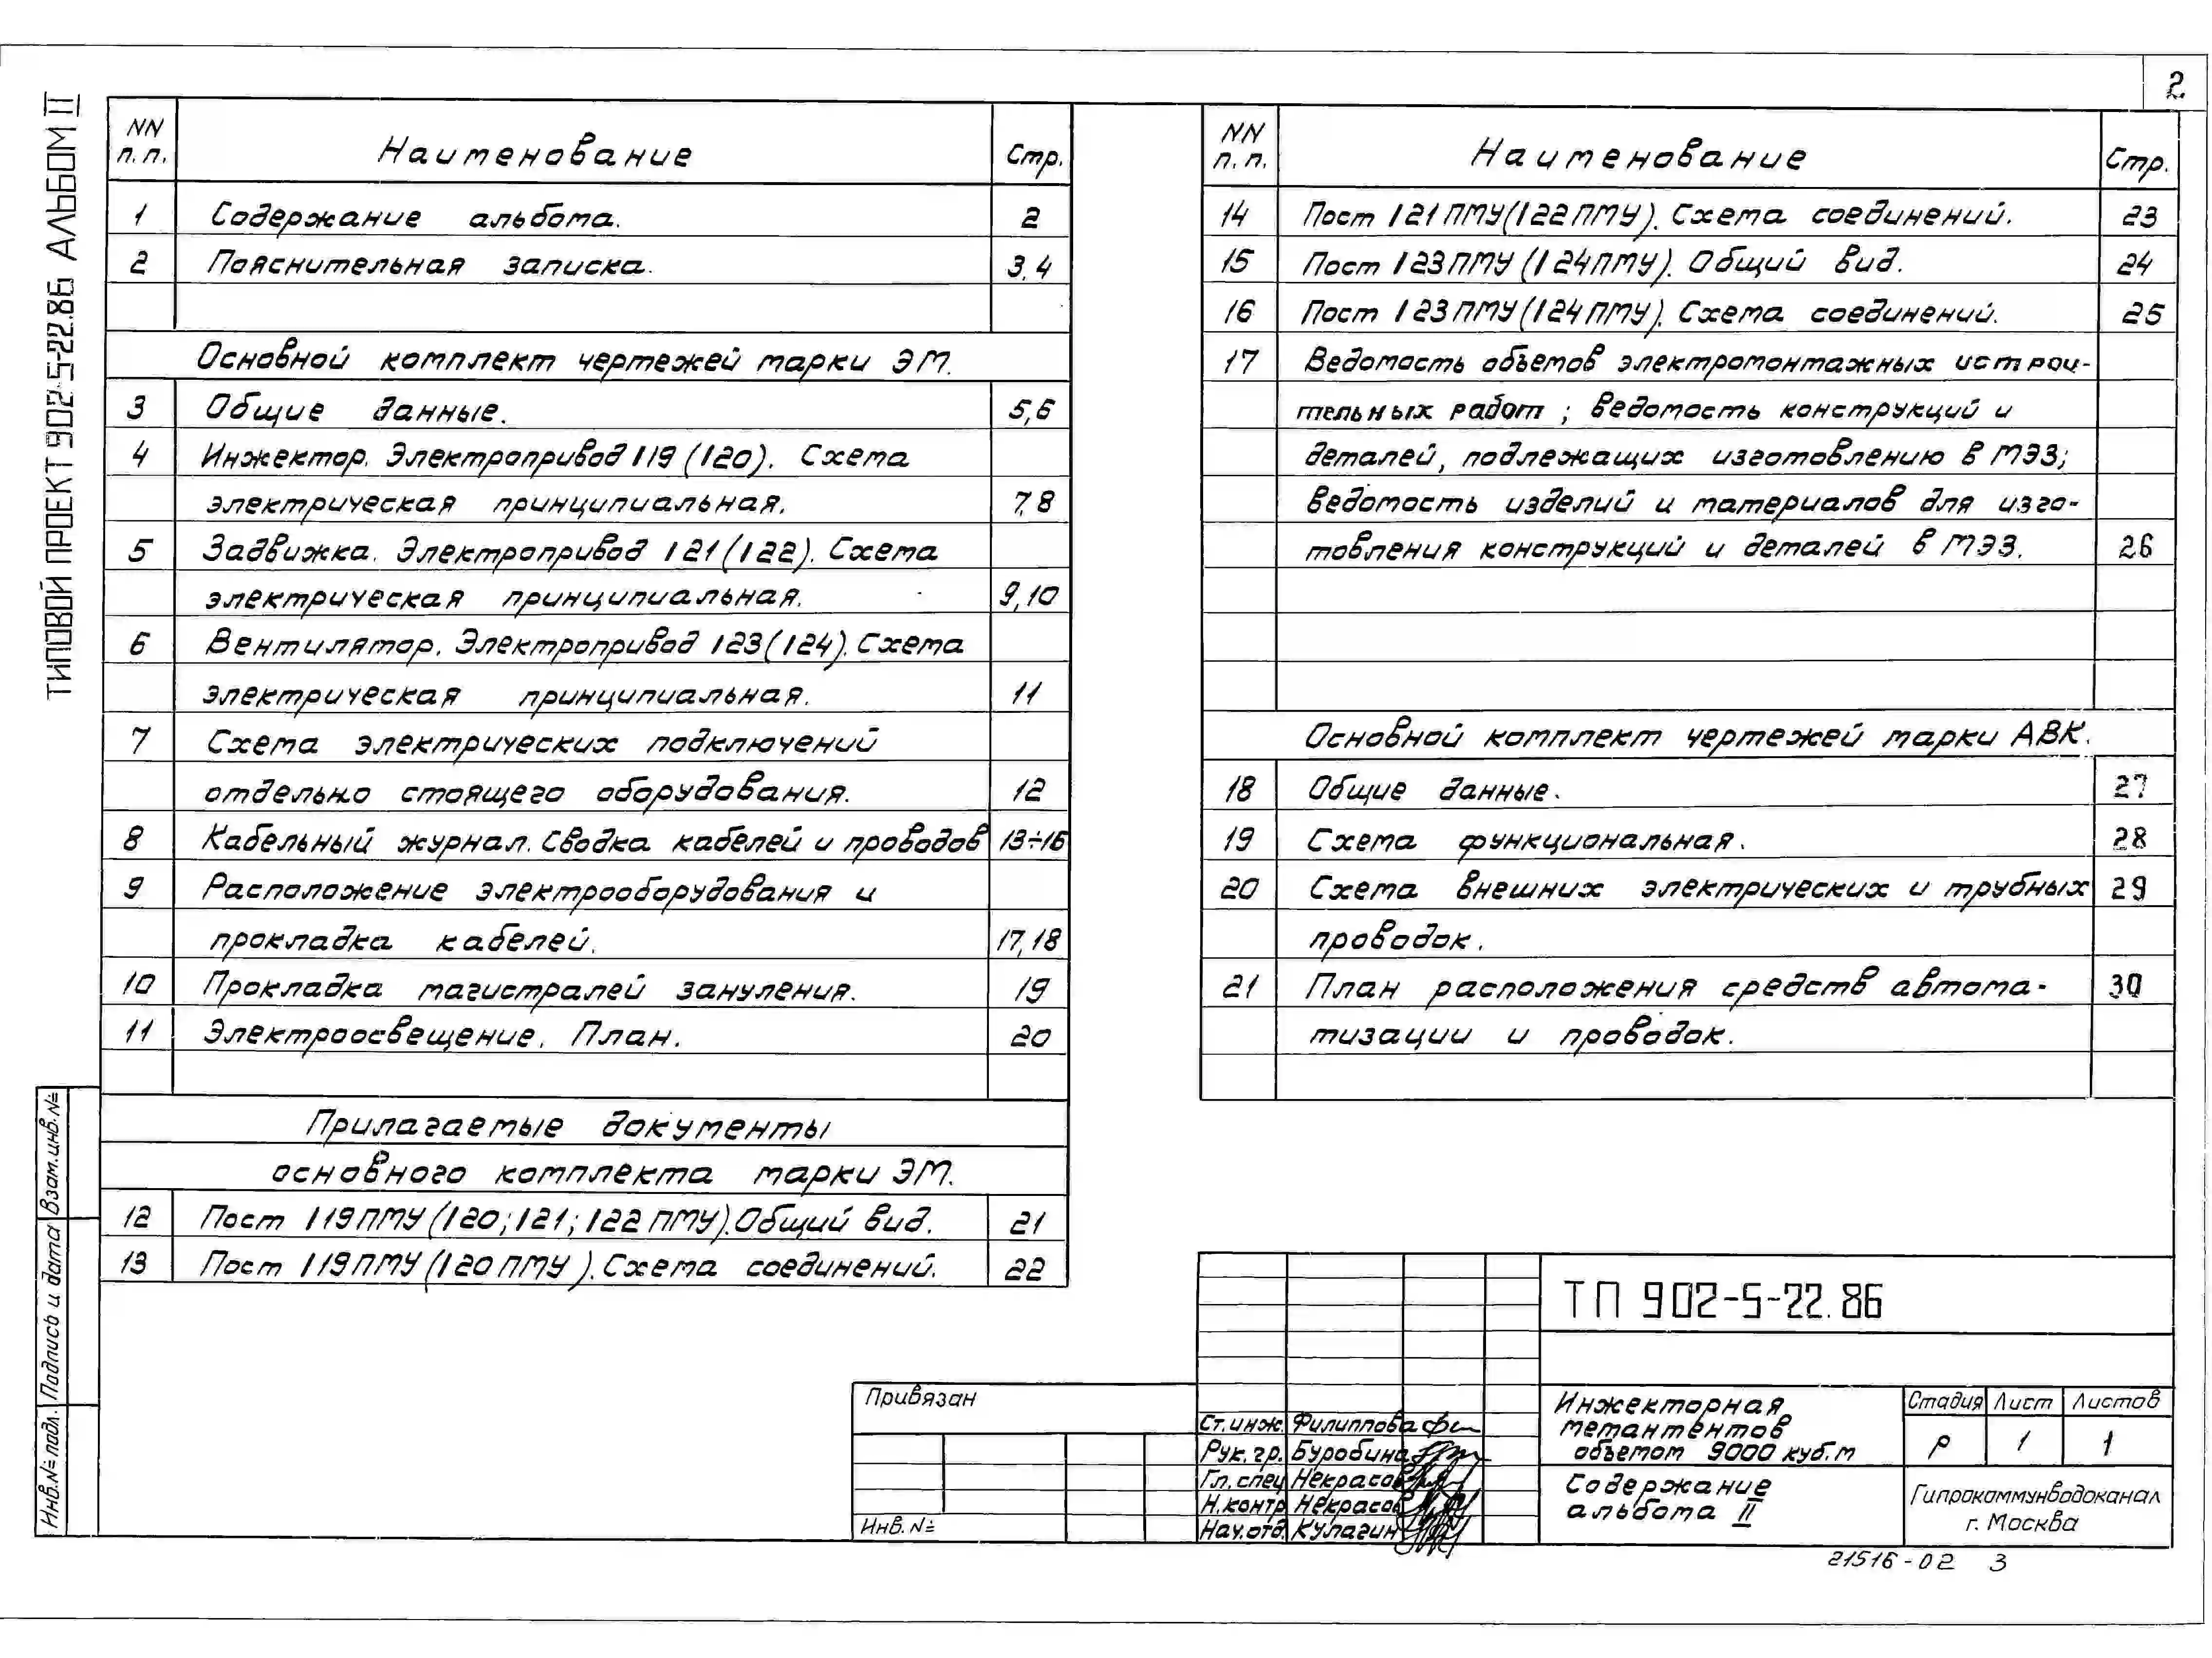 2
ТИПОВОЙ ПРОЕКТ 902-5-22.86 АЛЬБОМ II
NN п.п. Наименование Стр.
1 Содержание альбома. 2
2 Пояснительная записка. 3,4
Основной комплект чертежей марки ЭМ.
3 Общие данные. 5,6
4 Инжектор. Электропривод 119 (120). Схема
электрическая принципиальная. 7,8
5 Задвижка. Электропривод 121 (122). Схема
электрическая принципиальная. 9,10
6 Вентилятор. Электропривод 123 (124). Схема
электрическая принципиальная. 11
7 Схема электрических подключений
отдельно стоящего оборудования. 12
8 Кабельный журнал. Сводка кабелей и проводов 13÷16
9 Расположение электрооборудования и
прокладка кабелей. 17,18
10 Прокладка магистралей зануления. 19
11 Электроосвещение. План. 20
Прилагаемые документы
основного комплекта марки ЭМ.
12 Пост 119ПМУ (120; 121; 122 ПМУ). Общий вид. 21
13 Пост 119ПМУ (120 ПМУ). Схема соединений. 22
NN п.п. Наименование Стр.
14 Пост 121 ПМУ (122 ПМУ). Схема соединений. 23
15 Пост 123 ПМУ (124ПМУ). Общий вид. 24
16 Пост 123 ПМУ (124 ПМУ). Схема соединений. 25
17 Ведомость объемов электромонтажных и строи-
тельных работ; ведомость конструкций и
деталей, подлежащих изготовлению в МЭЗ;
ведомость изделий и материалов для изго-
товления конструкций и деталей в МЭЗ. 26
Основной комплект чертежей марки АВК.
18 Общие данные. 27
19 Схема функциональная. 28
20 Схема внешних электрических и трубных 29
проводок.
21 План расположения средств автома- 30
тизации и проводок.
Взам.инв.№
Подпись и дата
Инв.№ подл.
Привязан
Инв.№
Ст.инж. Филиппова
Рук.гр. Буробина
Гл.спец Некрасов
Н.контр Некрасов
Нач.отд. Кулагин
ТП 902-5-22.86
Инжекторная
метантентов
объемом 9000 куб.м
Стадия Лист Листов
Р 1 1
Содержание
альбома II
Гипрокоммунводоканал
г. Москва
21516-02 3